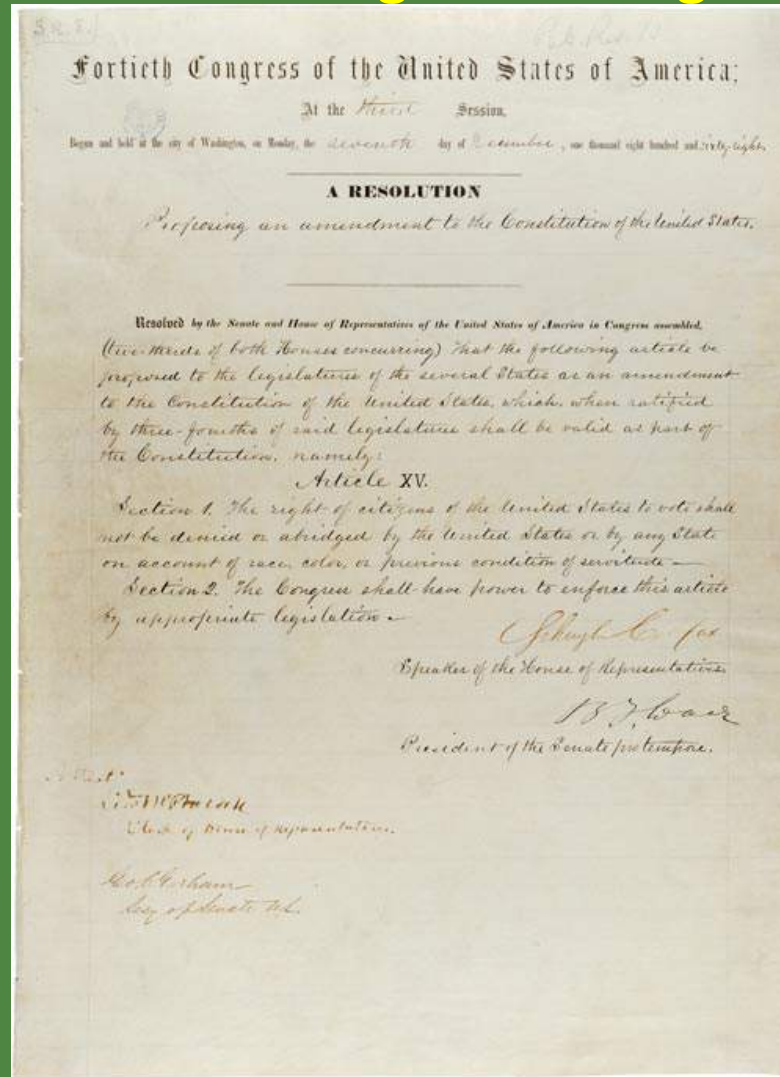 S.R. 8.
Fortieth Congress of the United States of America;
At the third Session,
Begun and held at the city of Washington, on Monday, the seventh day of December, one thousand eight hundred and sixty-eight.
A RESOLUTION
Proposing an amendment to the Constitution of the United States.
Resolved by the Senate and House of Representatives of the United States of America in Congress assembled,
(two-thirds of both Houses concurring) That the following article be
proposed to the legislatures of the several States as an amendment
to the Constitution of the United States, which, when ratified
by three-fourths of said legislatures shall be valid as part of
the Constitution, namely:
Article XV.
Section 1. The right of citizens of the United States to vote shall
not be denied or abridged by the United States or by any State
on account of race, color, or previous condition of servitude—
Section 2. The Congress shall have power to enforce this article
by appropriate legislation—
Schuyler Colfax
Speaker of the House of Representatives.
B F Wade
President of the Senate pro tempore.
Attest
Clerk of House of Representatives.
Geo. C. Gorham
Secy of Senate U.S.